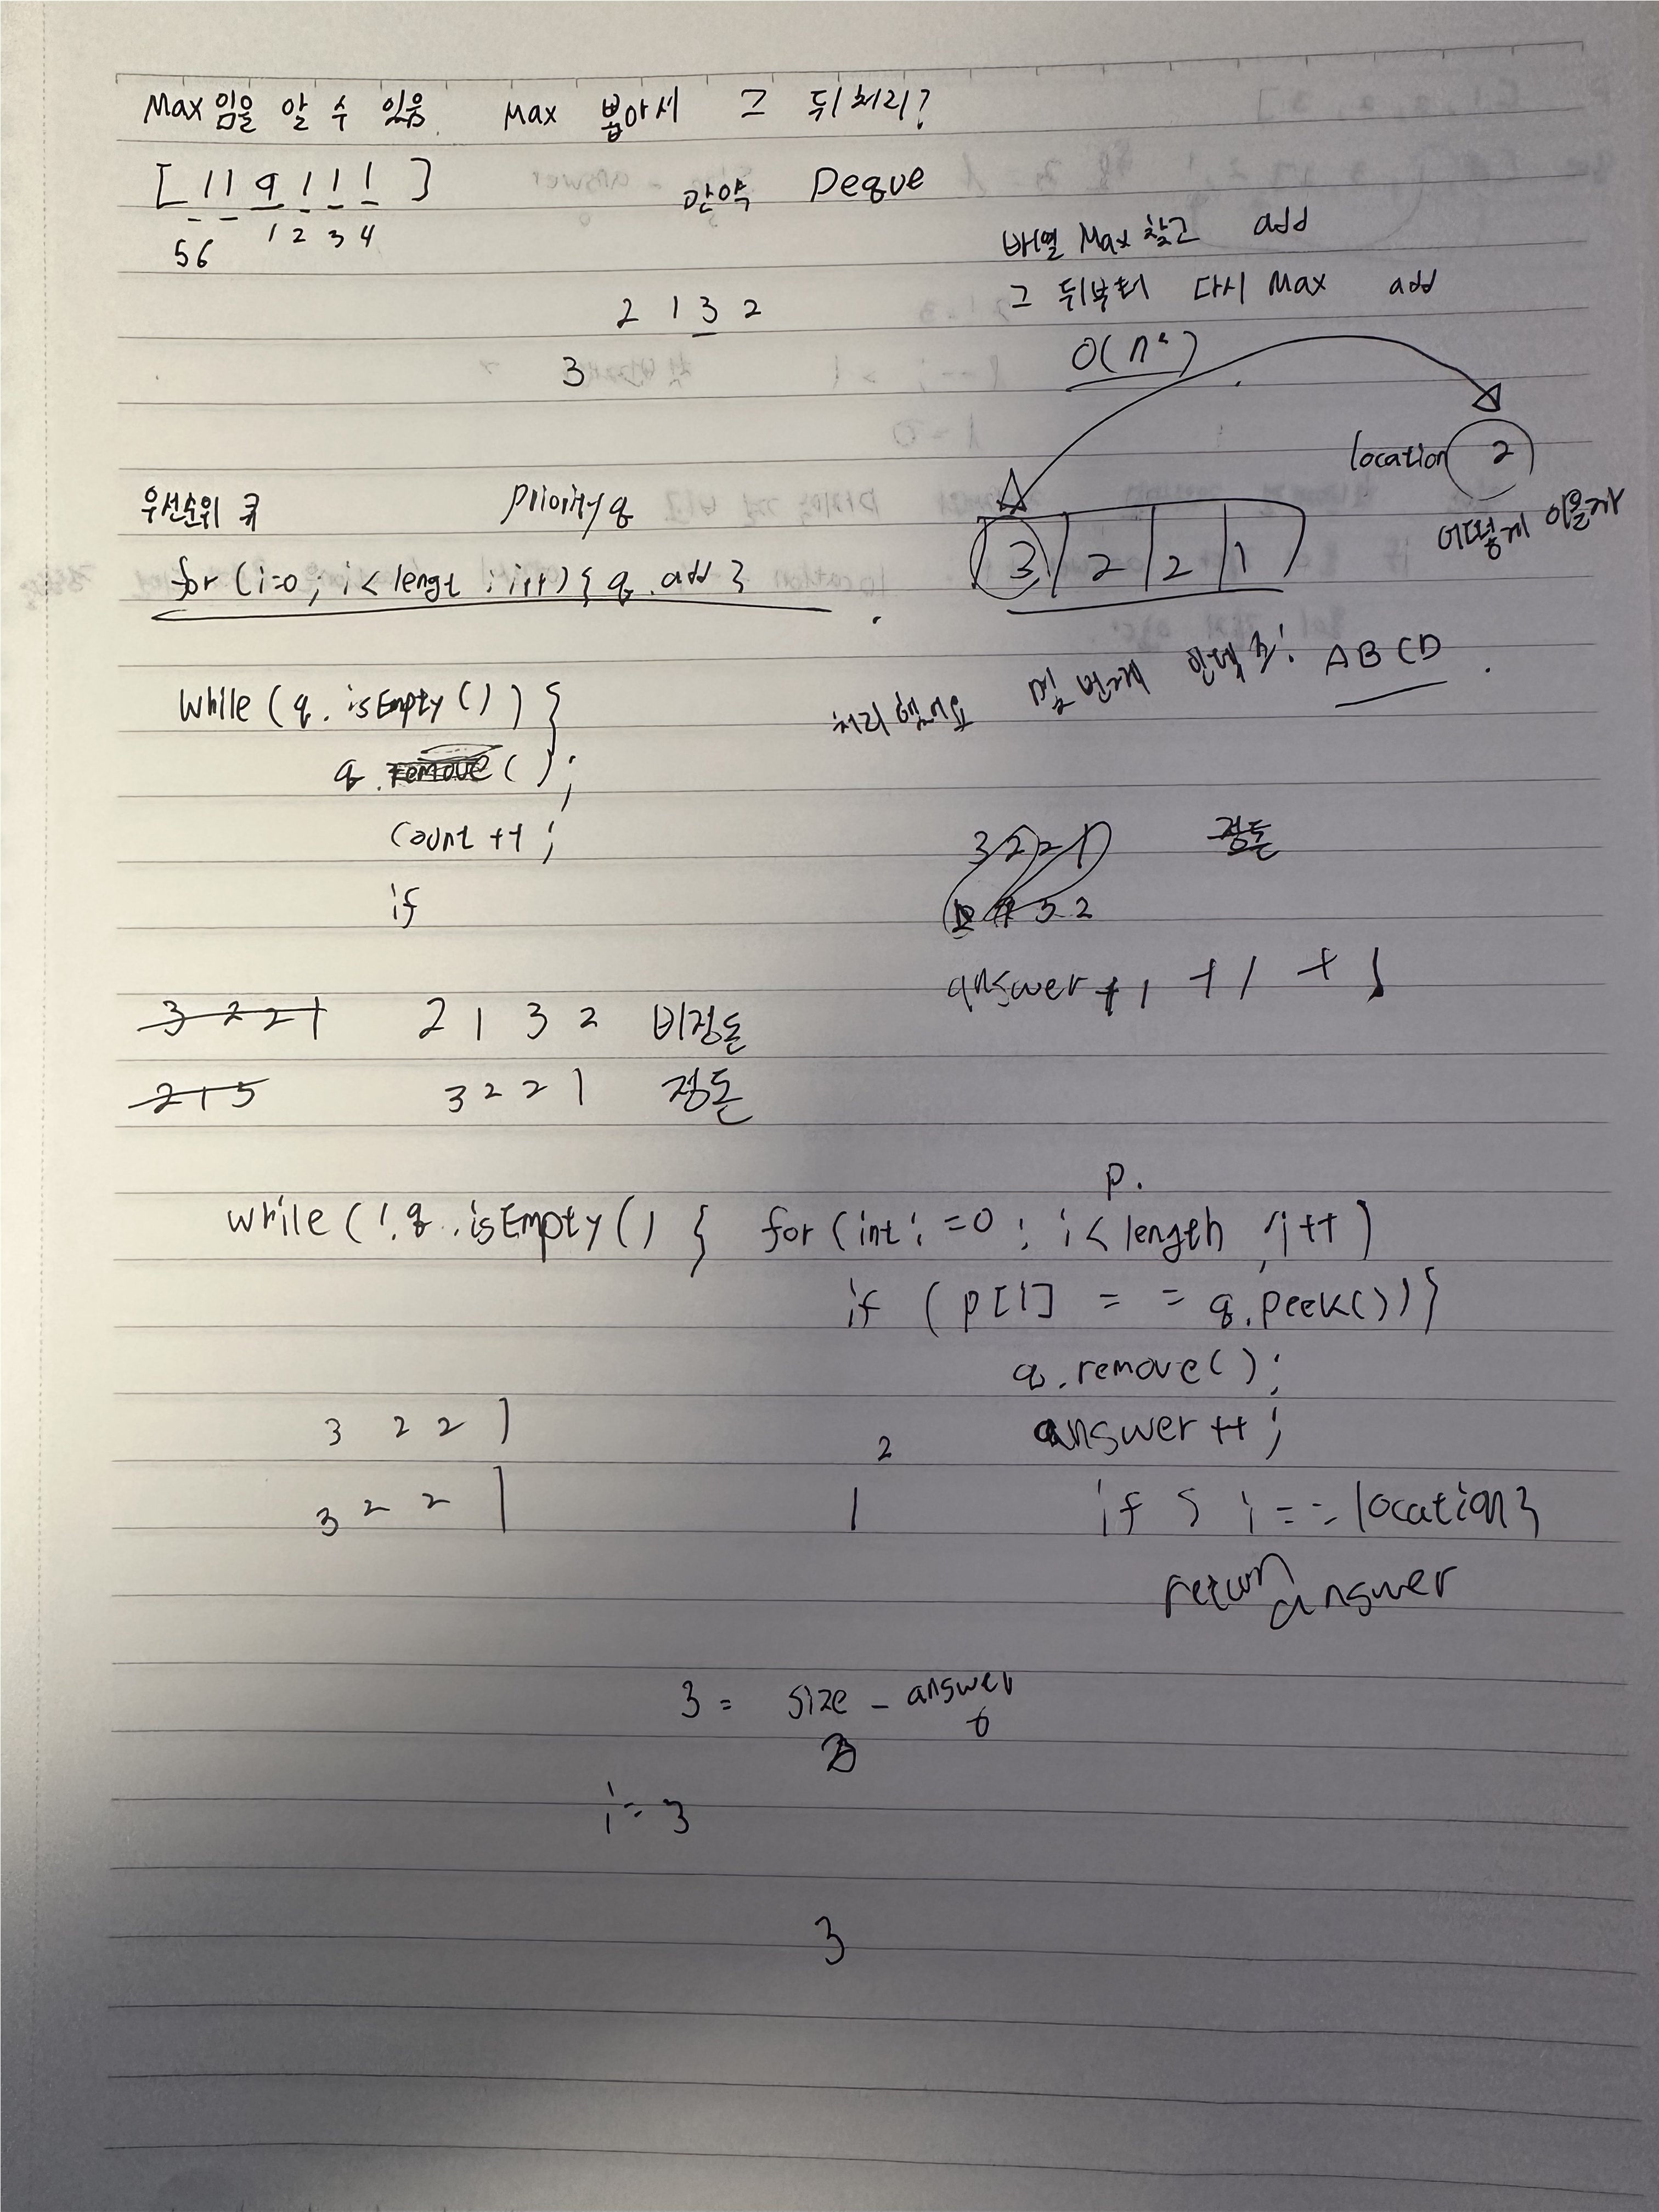 Max임을 알 수 있음 Max 뽑아서 그 뒤처리?
[ 1 1 9 1 1 1 ] 만약 Deque
5 6 1 2 3 4
배열 Max 찾고 add
그 뒤부터 다시 Max add
2 1 3 2
O(n²)
3
location 2
어떻게 이을까
우선순위 큐 Priority q
3 2 2 1
for (i=0; i<lengt ; i++){ q.add }
처리했어요 몇 번째 인덱스! ABCD
while (q.isEmpty()) {
q.remove();
count ++;
if
3 2 2 1 정돈
5 2
answer +1 +1 +1
3 2 2 1 2 1 3 2 비정돈
2 1 5 3 2 2 1 정돈
p.
while (!q.isEmpty() { for (int i=0; i<length ; i++)
if (p[i] == q.peek()){
q.remove();
3 2 2 1 2 answer ++;
3 2 2 1 1 if { i == location}
return answer
3 = size - answer
i = 3
3